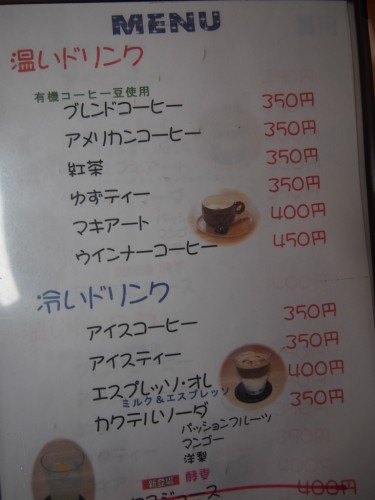 MENU
温いドリンク
有機コーヒー豆使用
ブレンドコーヒー 350円
アメリカンコーヒー 350円
紅茶 350円
ゆずティー 350円
マキアート 400円
ウインナーコーヒー 450円
冷いドリンク
アイスコーヒー 350円
アイスティー 350円
エスプレッソ・オレ 400円
ミルク&エスプレッソ
カクテルソーダ 350円
パッションフルーツ
マンゴー
洋梨
400円